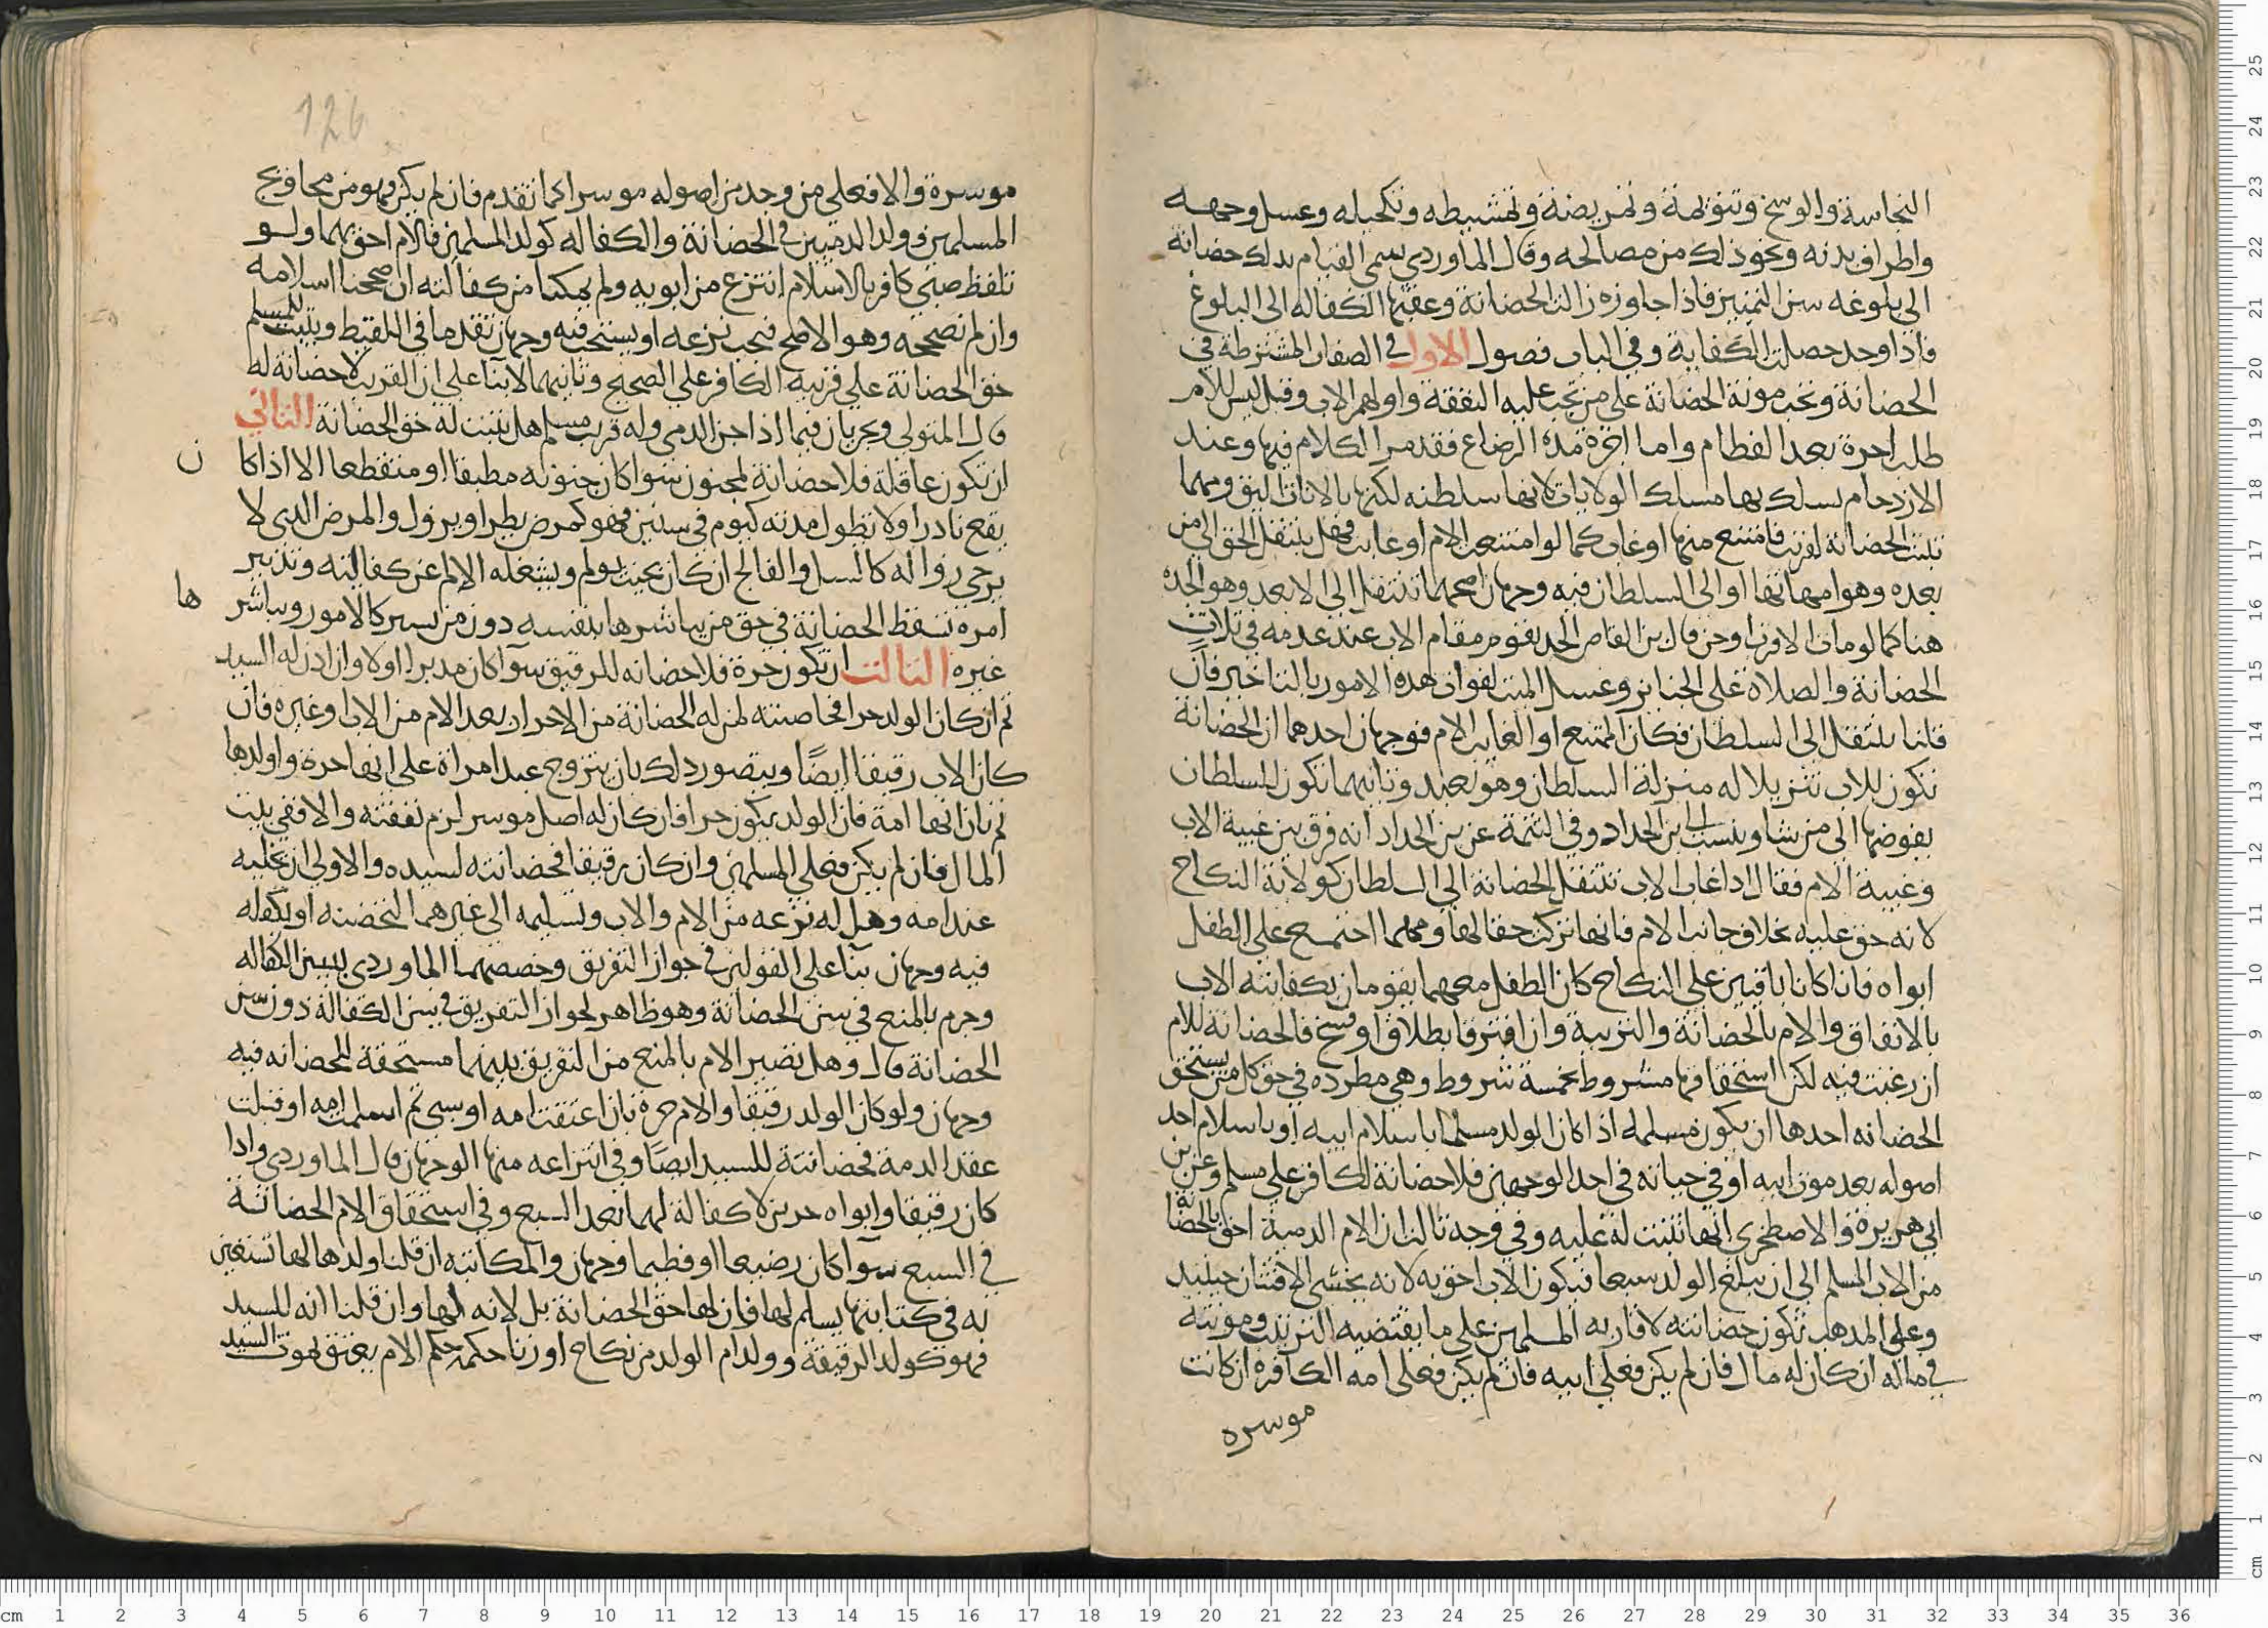 النجاسة والوسخ وتنويمه وتمريضه وتمشيطه وتكحيله وغسل وجهه
واطراف بدنه ونحو ذلك من مصالحه وقال الماوردي يسمى القيام بذلك حضانة
الى بلوغه سن التمييز فاذا جاوزه زالت الحضانة وعقبتها الكفاله الى البلوغ
فاذا وجد حصلت الكفاية وفي الباب فصول الاول في الصفات المشترطة في
الحضانة وتجب مونة الحضانة على من تجب عليه النفقة واولهم الاب وقيل ليس للام
طلب اجرة بعد الفطام واما اجرة مدة الرضاع فقد مر الكلام فيها وعند
الازدحام يسلك بها مسلك الولايات لانها سلطنه لكنها بالاناث اليق ومهما
ثبتت الحضانة لقريب فامتنع منها او غاب كما لو امتنعت الام او غابت فهل ينتقل الحق الى من
بعده وهو امهاتها او الى السلطان فيه وجهان اصحهما تنتقل الى الابعد وهو الجدة
هنا كما لو مات الاقرب او جن قال بن القاص الجد يقوم مقام الاب عند عدمه في ثلاث
الحضانة والصلاة على الجنايز وغسل الميت لفوات هذه الامور بالتاخير فان
قلنا ينتقل الى السلطان فكان الممتنع او الغايب الام فوجهان احدهما ان الحضانة
تكون للاب تنزيلا له منزلة السلطان وهو بعيد وثانيهما تكون للسلطان
يفوضها الى من شا وينسب الى ابن الحداد وفي التتمة عن بن الحداد انه فرق بين غيبة الاب
وغيبة الام فقال اذا غاب الاب تنتقل الحضانة الى السلطان كولاية النكاح
لانه حق عليه بخلاف جانب الام فانها تركت حقا لها ومهما اجتمع على الطفل
ابواه فاذا كانا باقيين على النكاح كان الطفل معهما يقومان بكفايته الاب
بالانفاق والام بالحضانة والتربية وان افترقا بطلاق او فسخ فالحضانة للام
ان رغبت فيه لكن استحقاقها مشروط بخمسة شروط وهي مطرده في حق كل من يستحق
الحضانه احدها ان يكون مسلمه اذا كان الولد مسلما باسلام ابيه او باسلام احد
اصوله بعد موت ابيه او في حياته في احد الوجهين فلا حضانة لكافر على مسلم وعن بن
ابي هريرة والاصطخري انها تثبت له عليه وفي وجه ثالث ان الام الذمية احق بالحضانة
من الاب المسلم الى ان يبلغ الولد سبعا فيكون الاب احق به لانه يخشى الافتتان حينيد
وعلى المذهب تكون حضانته لاقاربه المسلمين على ما يقتضيه الترتيب ومونته
في ماله ان كان له مال فان لم يكن فعلى ابيه فان لم يكن فعلى امه الكافرة ان كانت
موسره
126
موسرة والا فعلى من وجد من اصوله موسرا كما تقدم فان لم يكن فهو من محاويج
المسلمين وولد الذميين في الحضانة والكفاله كولد المسلمين فالام احق بهما ولو
تلفظ صبي كافر بالاسلام انتزع من ابويه ولم يمكنا من كفالته ان صححنا اسلامه
وان لم نصححه وهو الاصح فيجب نزعه او يستحب فيه وجهان تقدما في اللقيط ويثبت للمسلم
حق الحضانة على قريبه الكافر على الصحيح وثانيهما لا بنا على ان القريب لا حضانة له
قال المتولي ويجريان فيما اذا جن الذمي وله قريب مسلم هل تثبت له حق الحضانة الثاني
ان تكون عاقلة فلا حضانة لمجنون سوا كان جنونه مطبقا او منقطعا الا اذا كا
ن
يقع نادرا ولا تطول مدته كيوم في سنين فهو كمرض يطرا ويزول والمرض الذي لا
يرجى زواله كالسل والفالج ان كان بحيث يولم ويشغله الالم عن كفالته وتدبير
امره تسقط الحضانة في حق من يباشرها بنفسه دون من يسير كالامور ويباشر
ها
غيره الثالث ان تكون حرة فلا حضانه للرقيق سوآ كان مدبرا اولا وان اذن له السيد
ثم ان كان الولد حرا فحاضنته لمن له الحضانة من الاحرار بعد الام من الاب او غيره فان
كان الاب رقيقا ايضًا ويتصور ذلك بان يتزوج عبد امراة على انها حرة واولدها
ثم بان انها امة فان الولد يكون حرا فان كان له اصل موسر لزم نفقته والا ففي بيت
المال فان لم يكن فعلى المسلمين وان كان رقيقا فحضانته لسيده والاولى ان يخليه
عند امه وهل له نزعه من الام والاب وتسليمه الى غيرهما لتحضنه او يكفله
فيه وجهان بنآ على القولين في جواز التفريق وخصصهما الماوردي بسن الكفاله
وجزم بالمنع في سن الحضانة وهو ظاهر لجواز التفريق في سن الكفالة دون سن
الحضانة قال وهل تصير الام بالمنع من التفريق بينهما مستحقة للحضانه فيه
وجهان ولو كان الولد رقيقا والام حرة بان اعتقت امه او سبي ثم اسلمت امه او قبلت
عقد الذمة فحضانتة للسيد ايضًا وفي انتزاعه منها الوجهان قال الماوردي واذا
كان رقيقا وابواه حرين لا كفالة لهما بعد السبع وفي استحقاق الام الحضانة
في السبع سوآ كان رضيعا او فطيما وجهان والمكاتبه ان قلنا ولدها لها تستعين
به في كتابتها يسلم لها فان لها حق الحضانة بل لانه لها وان قلنا انه للسيد
فهو كولد الرقيقة وولد ام الولد من نكاح او زنا حكمه حكم الام يعتق بموت السيد